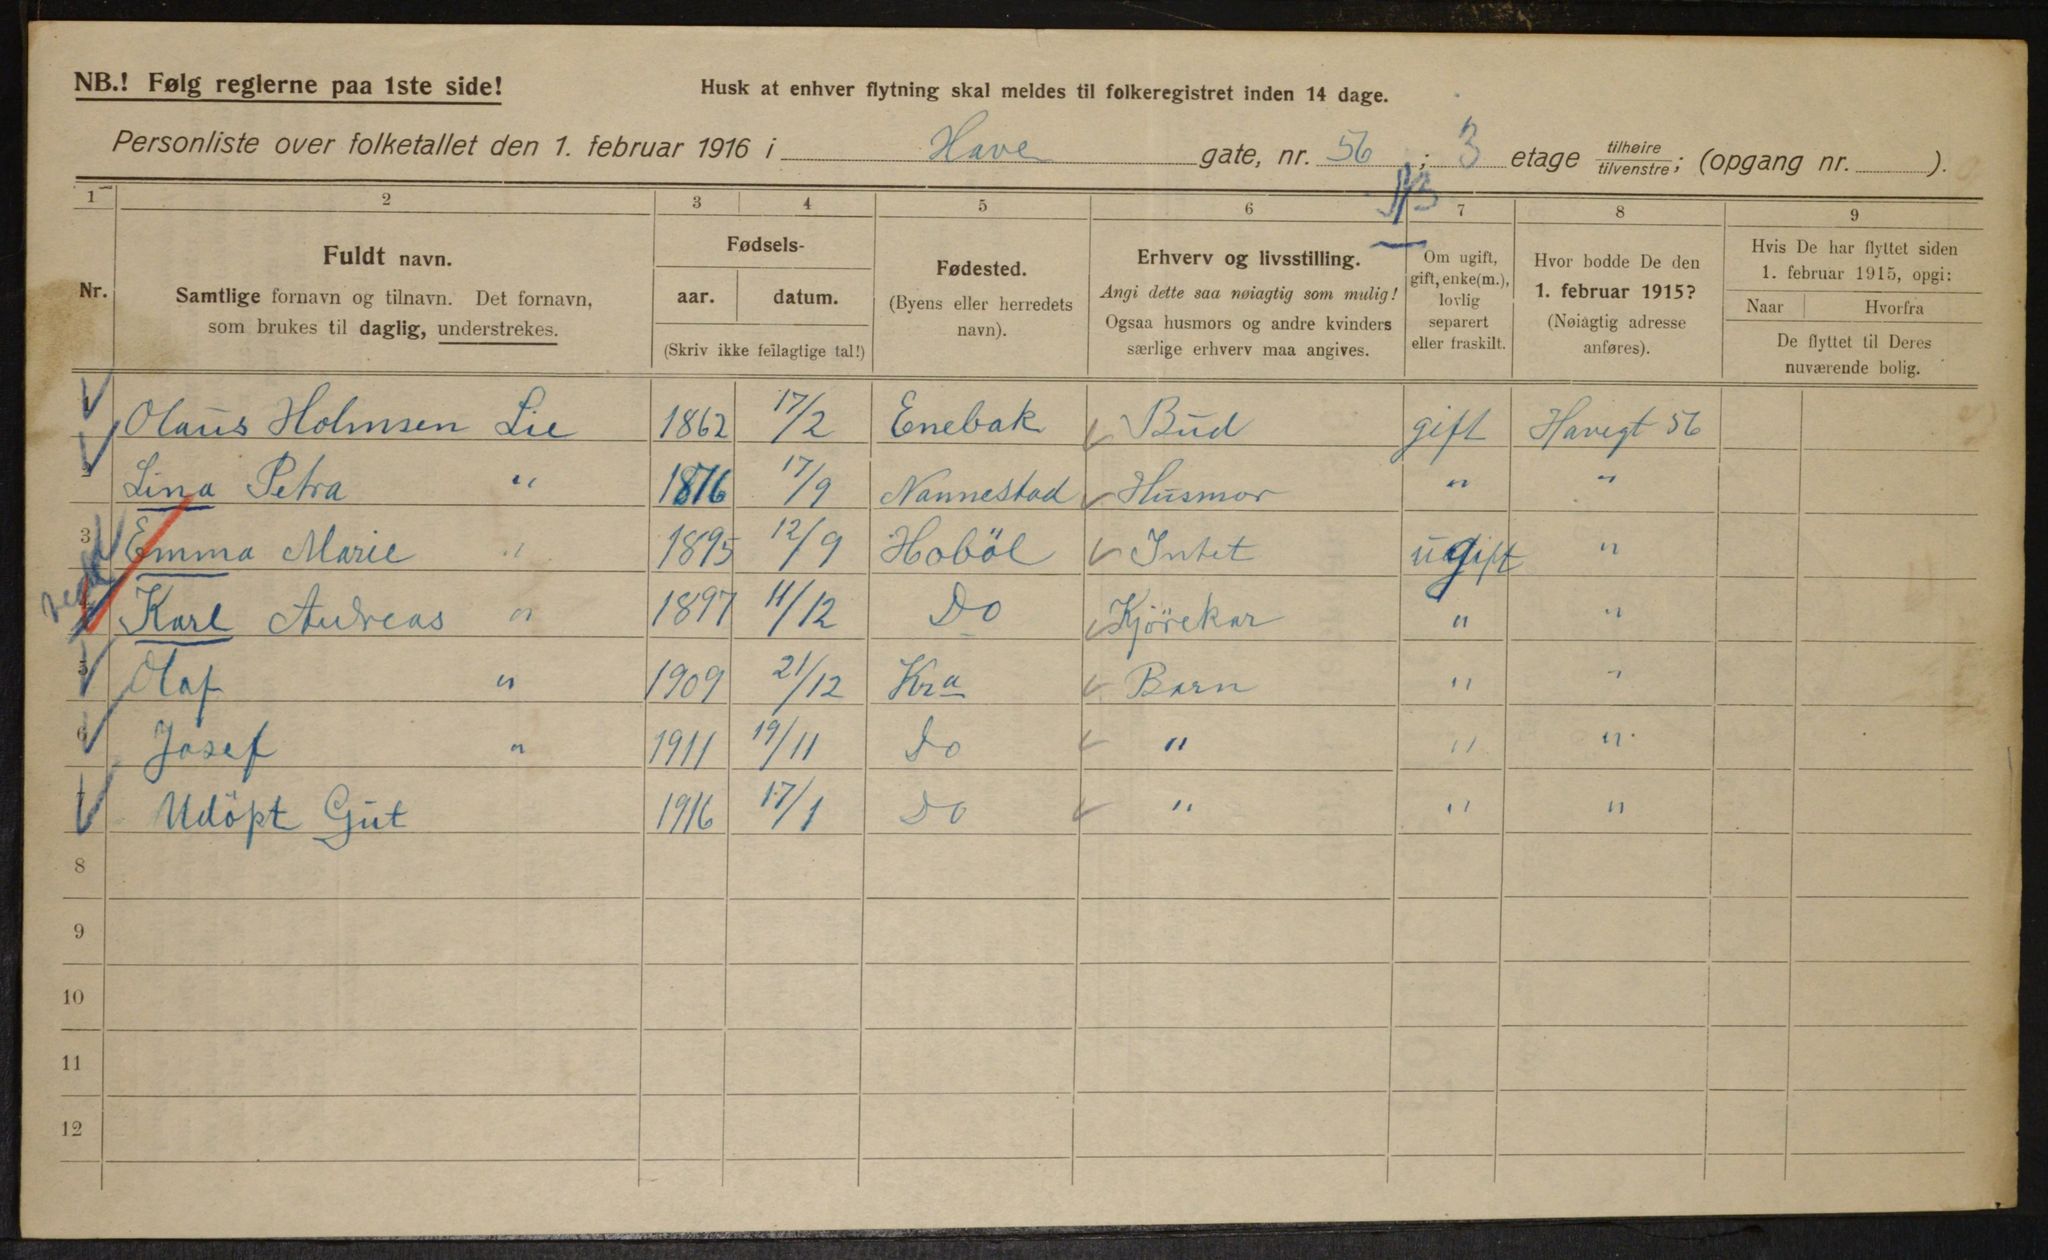 NB.! Følg reglerne paa 1ste side! Husk at enhver flytning skal meldes til folkeregistret inden 14 dage.
Personliste over folketallet den 1. februar 1916 i Have gate, nr. 56; 3 etage tilhøire/tilvenstre; (opgang nr. ).
1 2 3 4 5 6 7 8 9
Nr.
Fuldt navn.
Samtlige fornavn og tilnavn. Det fornavn,
som brukes til daglig, understrekes.
Fødsels-
aar. datum.
(Skriv ikke feilagtige tal!)
Fødested.
(Byens eller herredets
navn).
Erhverv og livsstilling.
Angi dette saa nøiagtig som mulig!
Ogsaa husmors og andre kvinders
særlige erhverv maa angives.
Om ugift,
gift, enke(m.),
lovlig
separert
eller fraskilt.
Hvor bodde De den
1. februar 1915?
(Nøiagtig adresse
anføres).
Hvis De har flyttet siden
1. februar 1915, opgi:
Naar Hvorfra
De flyttet til Deres
nuværende bolig.
1 Olaus Holmsen Lie 1862 17/2 Enebak Bud gift Havegt 56
2 Lina Petra " 1876 17/9 Nannestad Husmor " "
3 Emma Marie " 1895 12/9 Hoböl Intet ugift "
4 Karl Andreas " 1897 11/12 Do Kjörekar " "
5 Olaf " 1909 21/12 Kra Barn " "
6 Josef " 1911 19/11 Do " " "
7 Udöpt Gut 1916 17/1 Do " " "
8
9
10
11
12